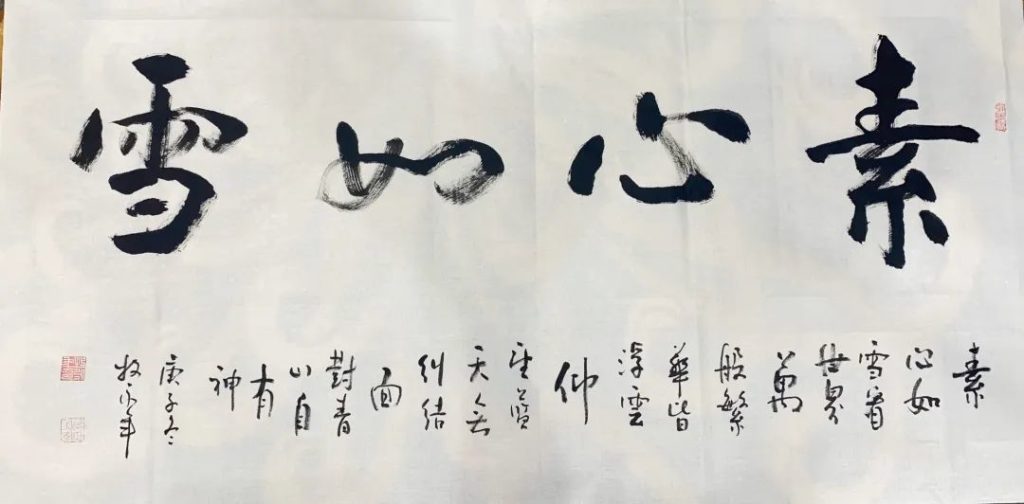 素心如雪
素
心如
雪看
世界
萬
般繁
華皆
浮雲
仰
望藍
天無
糾結
面
對青
山自
有
神
庚子冬